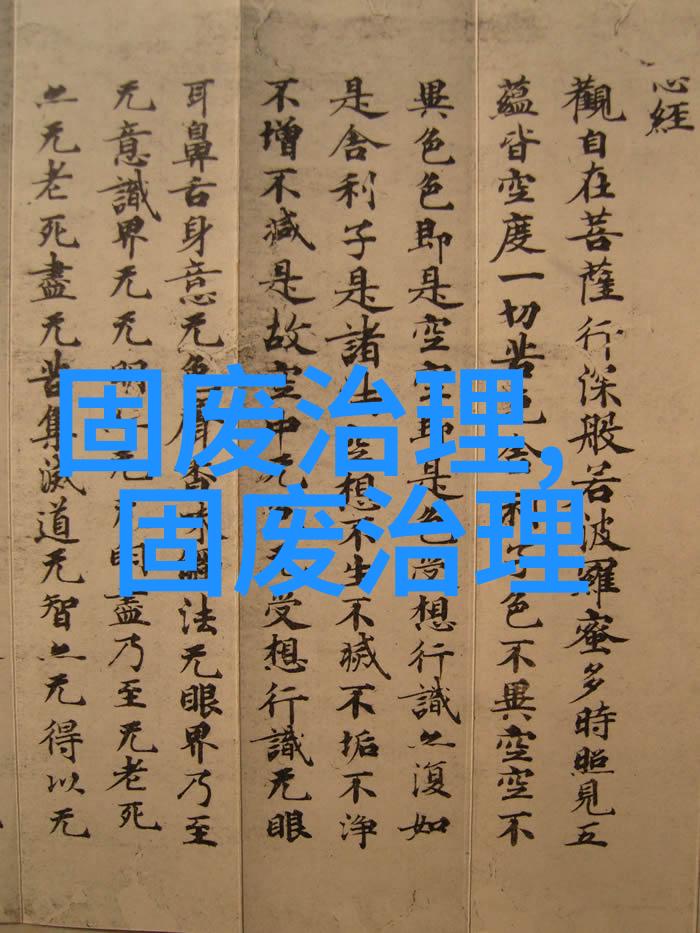 心經
觀自在菩薩行深般若波羅蜜多時照見五
蘊皆空度一切苦厄舍利子色不異空空不
異色色即是空空即是色受想行識亦復如
是舍利子是諸法空想不生不滅不垢不淨
不增不減是故空中无色无受想行識无眼
耳鼻舌身意无色聲香味觸法无眼界乃至
无意識界无无明亦无无明盡乃至无老死
亦无老死盡无苦集滅道无智亦无得以无
固废治理,
固废治理